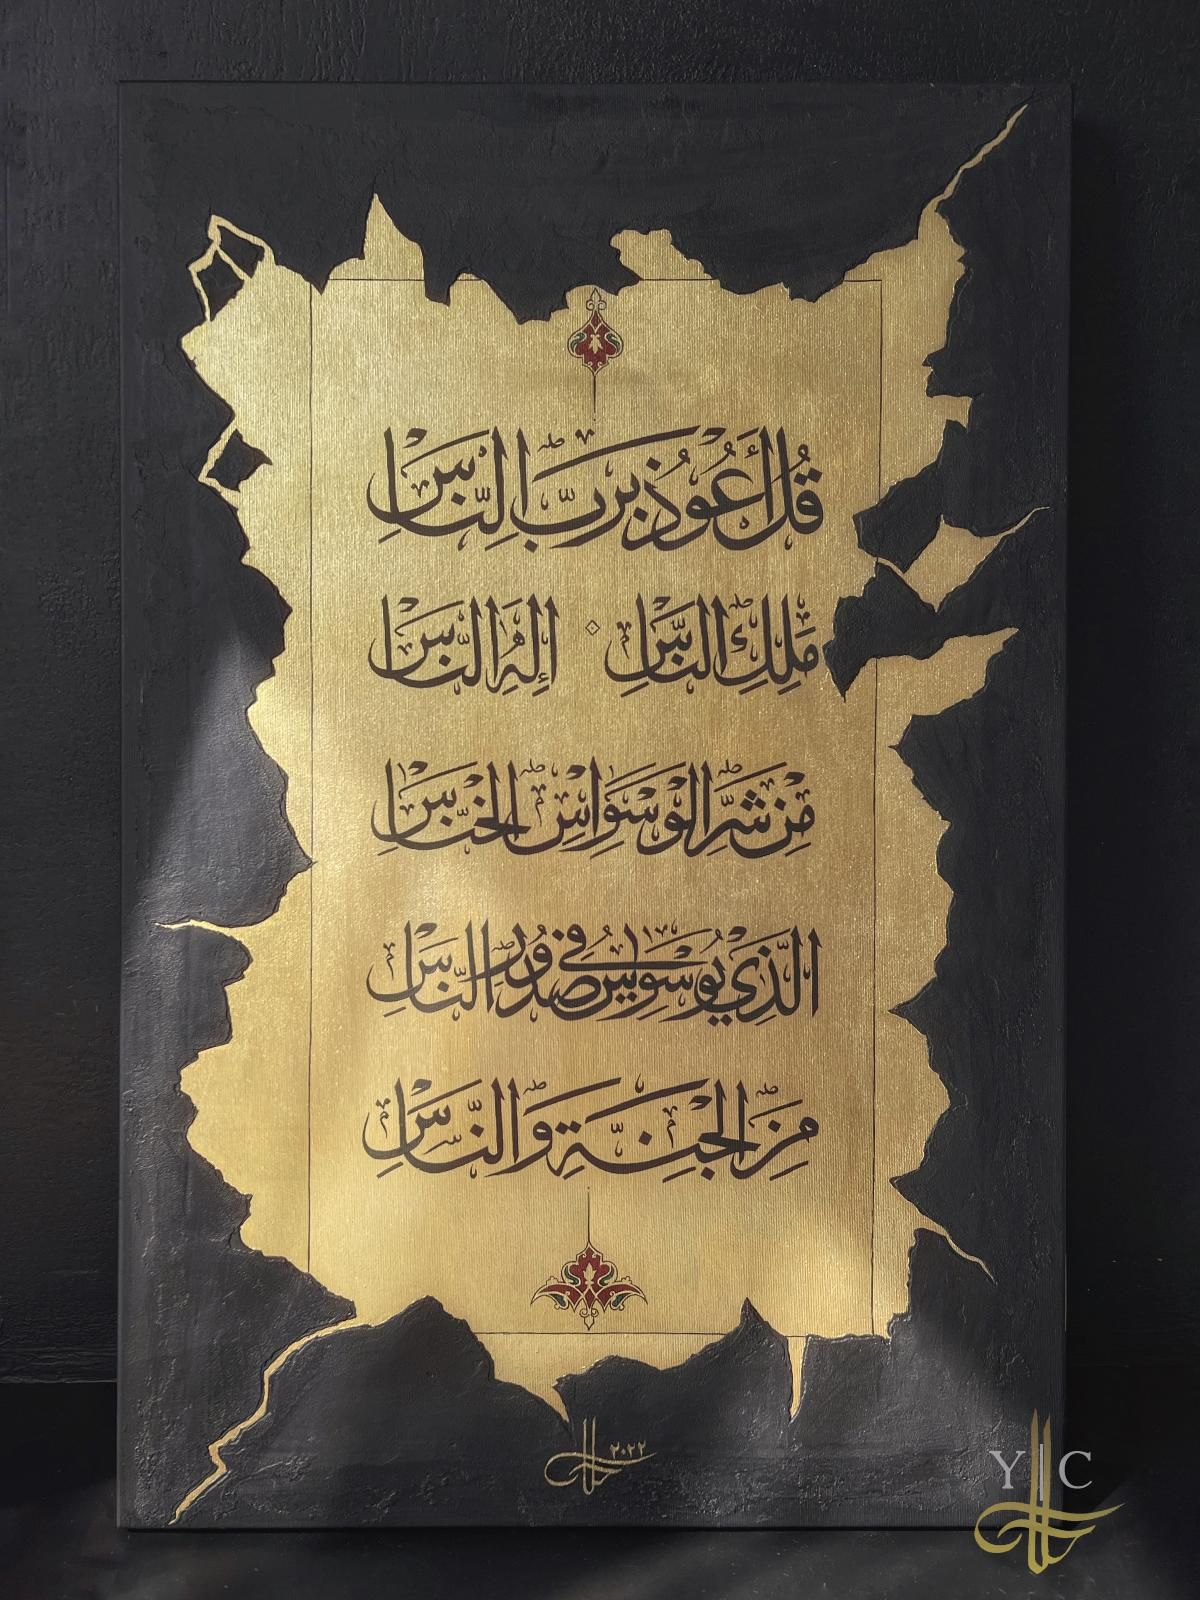 قُلْ أَعُوذُ بِرَبِّ النَّاسِ
مَلِكِ النَّاسِ ۞ إِلٰهِ النَّاسِ
مِنْ شَرِّ الْوَسْوَاسِ الْخَنَّاسِ
الَّذِي يُوَسْوِسُ فِي صُدُورِ النَّاسِ
مِنَ الْجِنَّةِ وَالنَّاسِ
٢٠٢٢
Y|C